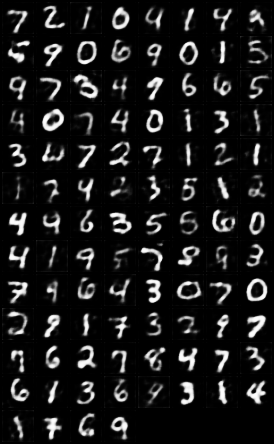 7 2 1 0 4 1 4 2
5 9 0 6 9 0 1 5
9 7 3 4 9 6 6 5
4 0 7 4 0 1 3 1
3 6 7 2 7 1 2 1
1 7 4 2 3 5 1 2
4 4 6 3 5 5 6 0
4 1 9 5 7 8 9 3
7 4 6 4 3 0 7 0
2 9 1 7 3 2 9 7
7 6 2 7 8 4 7 3
6 1 3 6 9 3 1 4
1 7 6 9